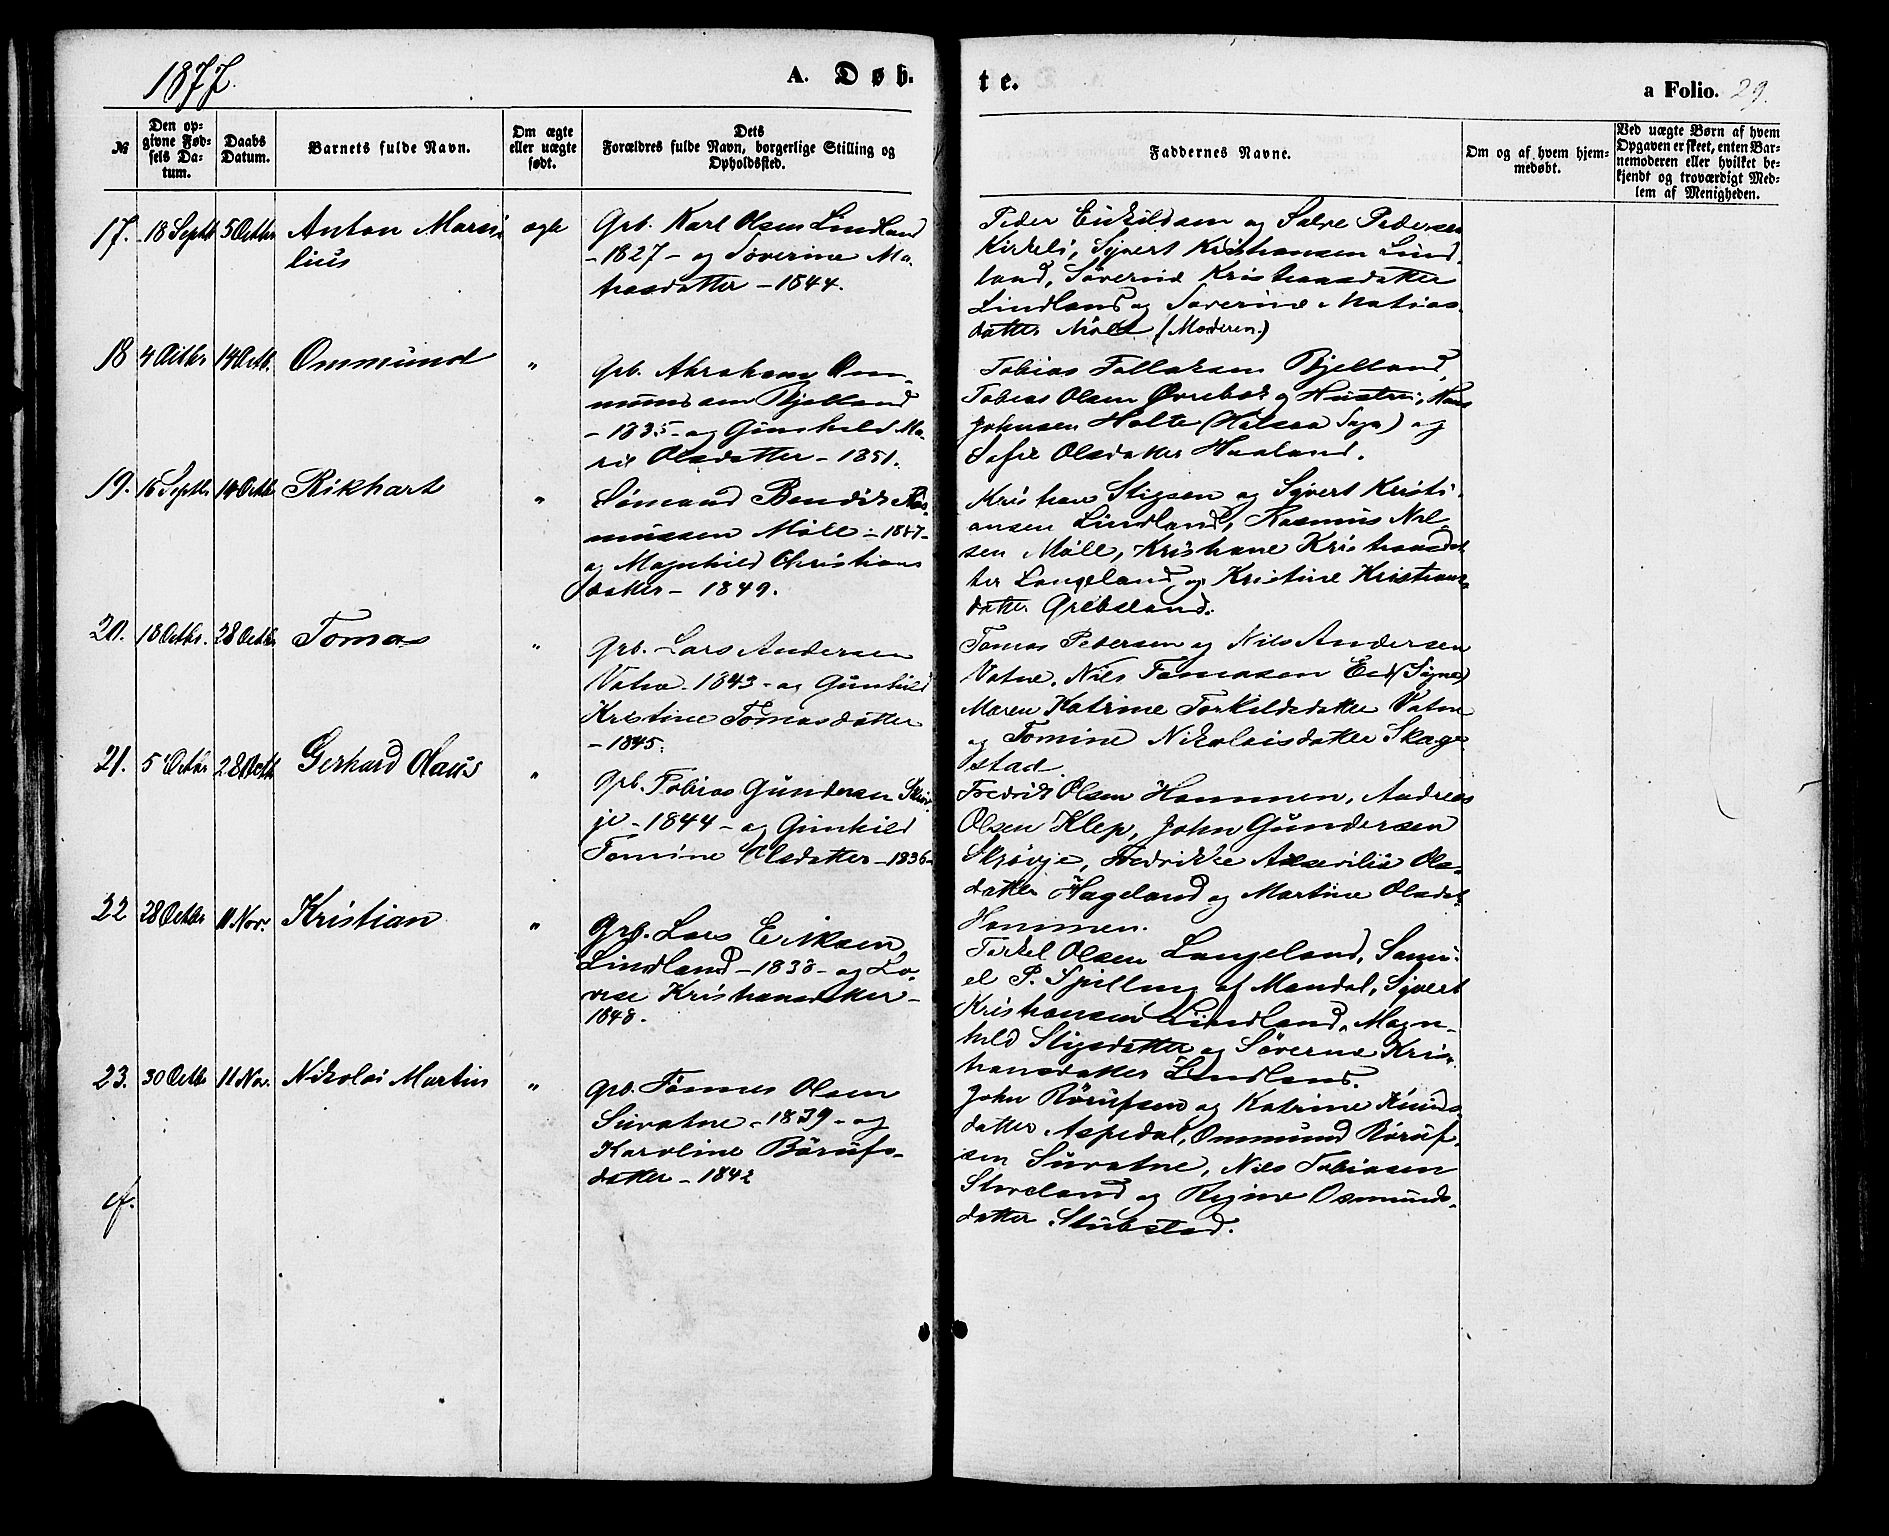 1877.
A. Døb-
te.
a Folio. 29.
№
Den op-
givne Fød-
sels Da-
tum.
Daabs
Datum.
Barnets fulde Navn.
Om ægte
eller uægte
født.
Dets
Forældres fulde Navn, borgerlige Stilling og
Opholdssted.
Faddernes Navne.
Om og af hvem hjem-
medøbt.
Ved uægte Børn af hvem
Opgaven er skeet, enten Bar-
nemoderen eller hvilket be-
kjendt og troværdigt Med-
lem af Menigheden.
17. 18 Septb 5 Octbr Anton Marsi
lius
ægte
Grb. Karl Olsen Lindland
- 1827 - og Soverine Ma-
thosdatter - 1844.
Peder Eiekildsen og Salve Pedersen
Kirkeli, Syvert Kristiansen Lind-
land, Søverine Kristiansdatter
Lindland og Soverine Matias-
datter Møll (Moderen.)
18 4 Octbr 14 Octb. Ommund
"
Grb. Abraham Om-
mundsen Bjelland
- 1835 - og Gunhild Ma-
rie Olsdatter - 1851.
Tobias Tollaksen Bjelland,
Tobias Olsen Øvrebø og Hustru, Hans
Johnsen Holte (Halsaa Sogn) og
Sofie Olsdatter Haaland.
19. 16 Septbr 14 Octb Rikhart
"
Sømand Bendik Ras-
mussen Mølle - 1847 -
og Magnhild Christians
datter - 1849.
Kristian Stigsen og Syvert Kristi-
ansen Lindland, Rasmus Niel-
sen Mølle, Kristiane Kristiansdat-
ter Langeland og Kristine Kristians-
datter Grebsland.
20. 18 Octbr. 28 Octbr Tomas
"
Grb. Lars Andersen
Vatne. 1843 - og Gunhild
Kristine Tomasdatter
- 1845.
Tomas Pedersen og Nils Andersen
Vatne, Nils Tomassen Eed (Søgne)
Maren Katrine Torkildsdatter Vatne
og Tomine Nikolaisdatter Skage-
stad.
21. 5 Octbr 28 Octb Gerhard Olaus
"
Grb. Tobias Gundersen Skøv-
je - 1844 - og Gunhild
Tomine Olsdatter - 1836 -
Fredrik Olsen Hommen, Andreas
Olsen Klep, John Gundersen
Skjøvje, Fredrikke Ols-
datter Hageland og Martine Olsdat.
Hommen.
22 28 Octbr 11 Nov. Kristian
"
Grb. Lars Eriksen
Lindland - 1838 - og Lo-
vise Kristiansdatter -
1848.
Terkel Olsen Langeland, Samu-
el P. Spilling af Mandal, Syvert
Kristiansen Lindland, Magn-
hild Stigsdatter og Søverine Kris-
tiansdatter Lindland.
23. 30 Octb 11 Nov. Nikolai Martin
"
Grb. Tønnes Olsen
Suvatne - 1839 - og
Karoline Børufs-
datter - 1842
John Børufsen og Katrine Knuds-
datter Aspedal, Ommund Børuf-
sen Suvatne, Nils Tobiasen
Storeland og Regine Osmunds-
datter Stubstad.
ef.